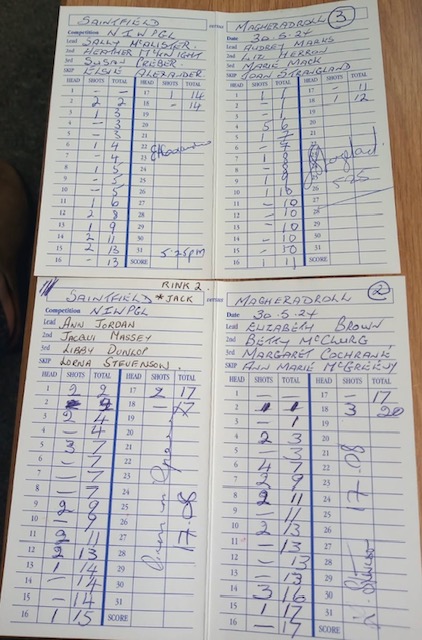 SAINTFIELD versus MAGHERADROLL 3
Competition NIWPGL Date 30.5.24
Lead SALLY McALISTER Lead AUDREY MARKS
2nd HEATHER McKNIGHT 2nd LIZ HERRON
3rd SUSAN CREBER 3rd MARIE MACK
SKIP ELSIE ALEXANDER SKIP JOAN STRANGLAND
HEAD SHOTS TOTAL HEAD SHOTS TOTAL HEAD SHOTS TOTAL HEAD SHOTS TOTAL
1 - - 17 1 14 1 1 1 17 - 11
2 2 2 18 - 14 2 - 1 18 1 12
3 1 3 19 3 - 1 19
4 - 3 20 4 5 6 20
5 - 3 21 5 1 7 21
6 1 4 22 6 - 7 22
7 - 4 23 7 1 8 23
8 1 5 24 8 - 8 24
9 - 5 25 9 1 9 25 5.25
10 - 5 26 10 1 10 26
11 1 6 27 11 - 10 27
12 2 8 28 12 - 10 28
13 1 9 29 13 - 10 29
14 2 11 30 14 - 10 30
15 2 13 31 5.25pm 15 - 10 31
16 - 13 SCORE 16 1 11 SCORE
RINK 2.
SAINTFIELD *JACK versus MAGHERADROLL 2
Competition NIWPGL Date 30.5.24
Lead ANN JORDAN Lead ELIZABETH BROWN
2nd JACQUI MASSEY 2nd BETTY McCLURG
3rd LIBBY DUNLOP 3rd MARGARET COCHRANE
SKIP LORNA STEVENSON SKIP ANN MARIE McGREEVY
HEAD SHOTS TOTAL HEAD SHOTS TOTAL HEAD SHOTS TOTAL HEAD SHOTS TOTAL
1 2 2 17 2 17 1 - - 17 - 17
2 - 2 18 - 17 2 1 1 18 3 20
3 2 4 19 3 - 1 19
4 - 4 20 4 2 3 20
5 3 7 21 5 - 3 21
6 - 7 22 6 4 7 22
7 - 7 23 7 2 9 23
8 - 7 24 8 2 11 24
9 2 9 25 9 - 11 25
10 - 9 26 10 2 13 26
11 2 11 27 11 - 13 27
12 2 13 28 12 - 13 28
13 1 14 29 13 - 13 29
14 - 14 30 14 3 16 30
15 - 14 31 15 1 17 31
16 1 15 SCORE 16 - 17 SCORE
17.08
17.08